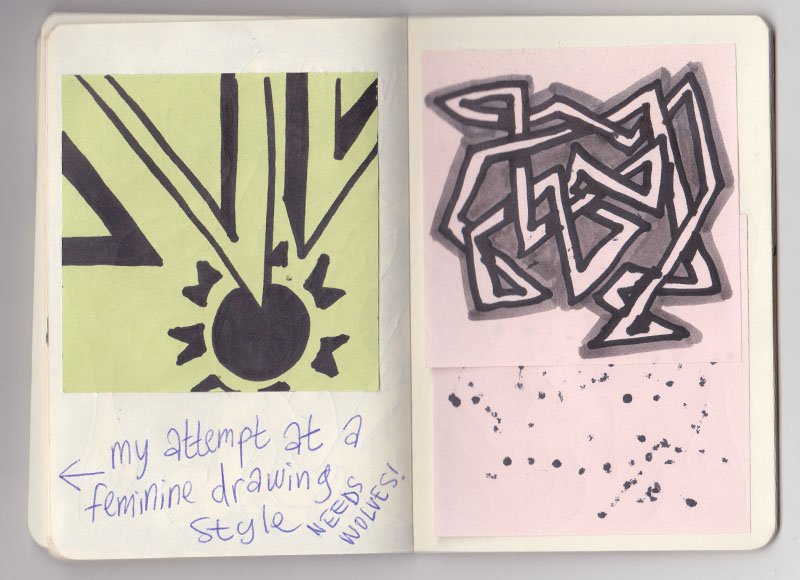 my attempt at a
feminine drawing
style
NEEDS
WOLVES!